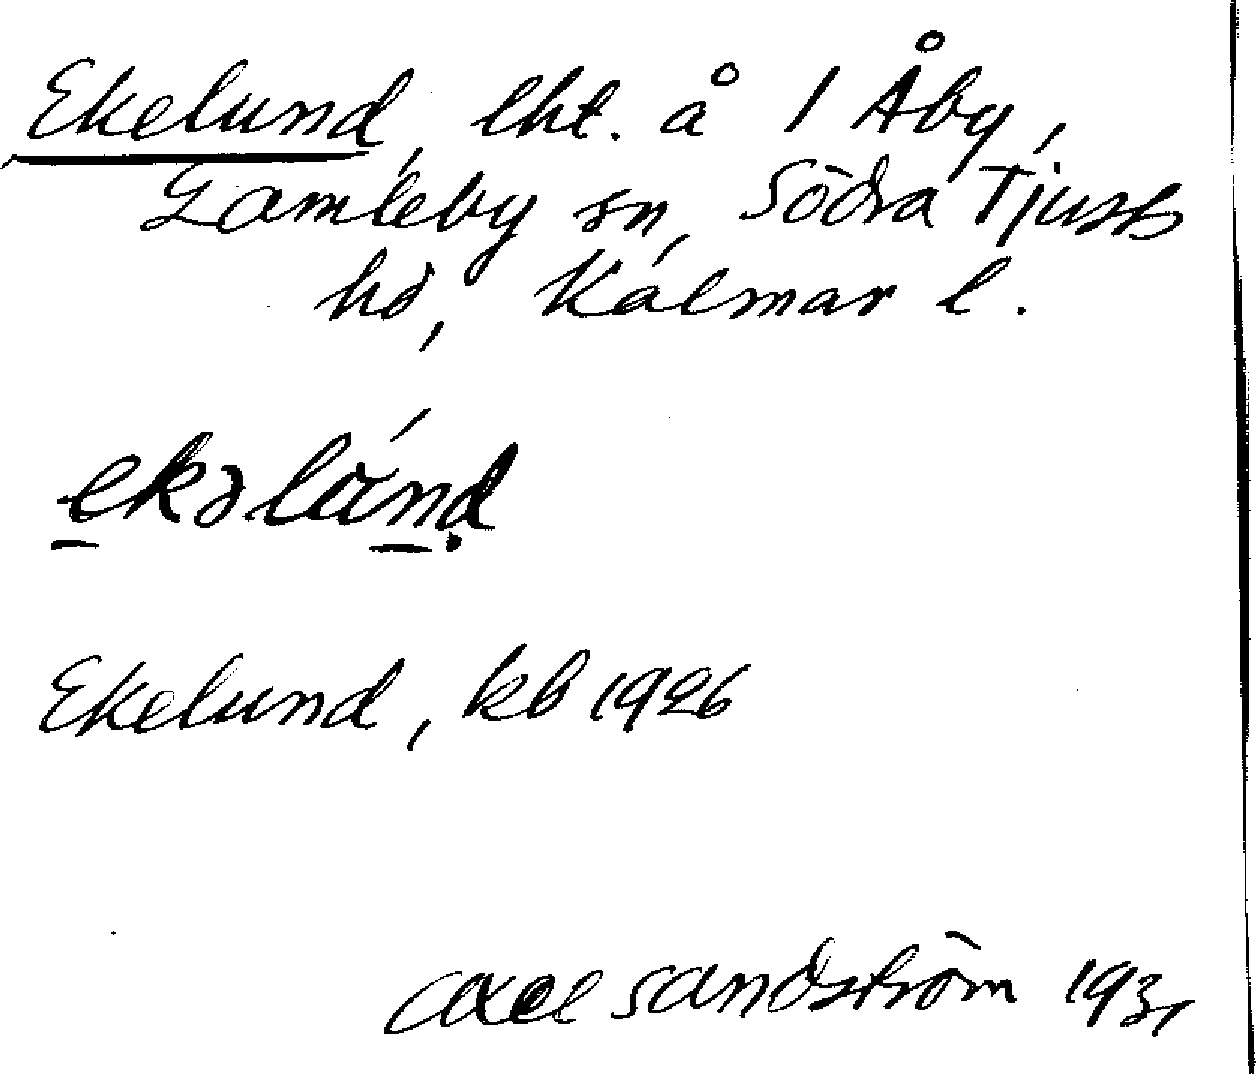 Ekelund, lht. å 1 Åby,
Gamleby sn, Södra Tjusts
hd, Kalmar l.
ekəlùnd
Ekelund, kb 1926
Axel Sandström 1931